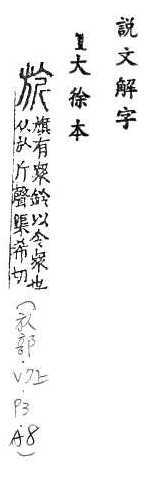 說文解字
大徐本
旂 旗有眾鈴以令眾也
从㫃斤聲渠希切
(㫃部·V7上·P3·A8)